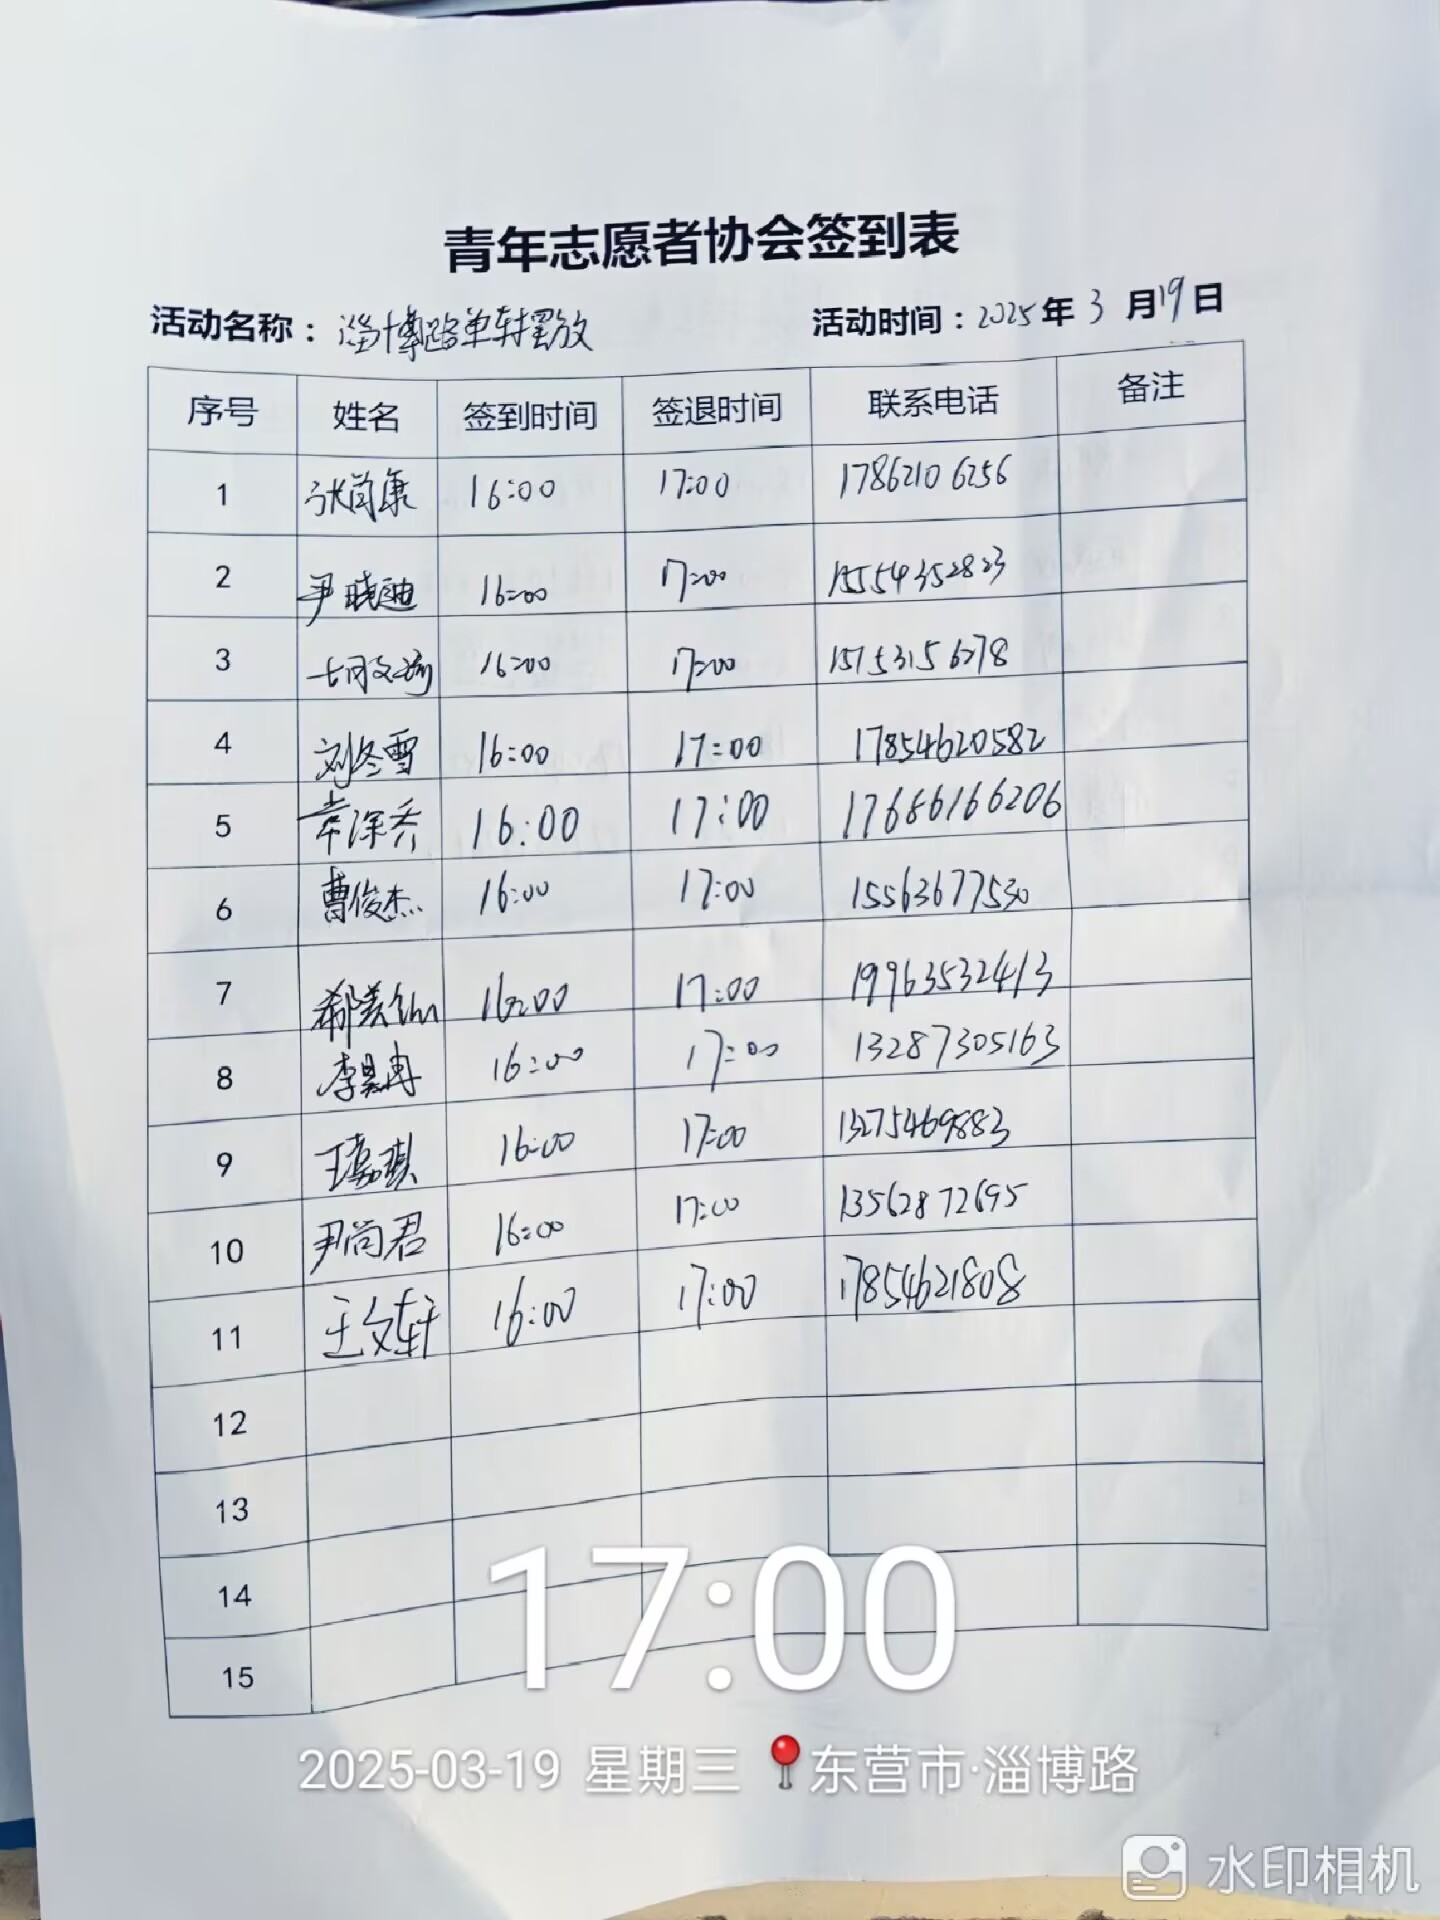 青年志愿者协会签到表
活动名称：淄博路单车摆放 活动时间：2025年3月19日
序号 姓名 签到时间 签退时间 联系电话 备注
1 张尚康 16:00 17:00 17862106256
2 尹晓迪 16:00 17:00 15554352823
3 16:00 17:00 15153156278
4 刘冬雪 16:00 17:00 17854620582
5 16:00 17:00 17686166206
6 曹俊杰 16:00 17:00 15563677530
7 16:00 17:00 19963532413
8 李昊冉 16:00 17:00 13287305163
9 王嘉琪 16:00 17:00 13275469883
10 尹尚君 16:00 17:00 13562872695
11 王文轩 16:00 17:00 17854621808
12
13
14
15
17:00
2025-03-19 星期三 东营市·淄博路
水印相机